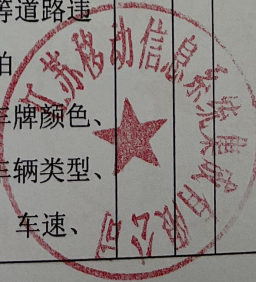 等道路违
拍
车牌颜色、
车辆类型、
车速、
江苏移动信息系统集成有限公司